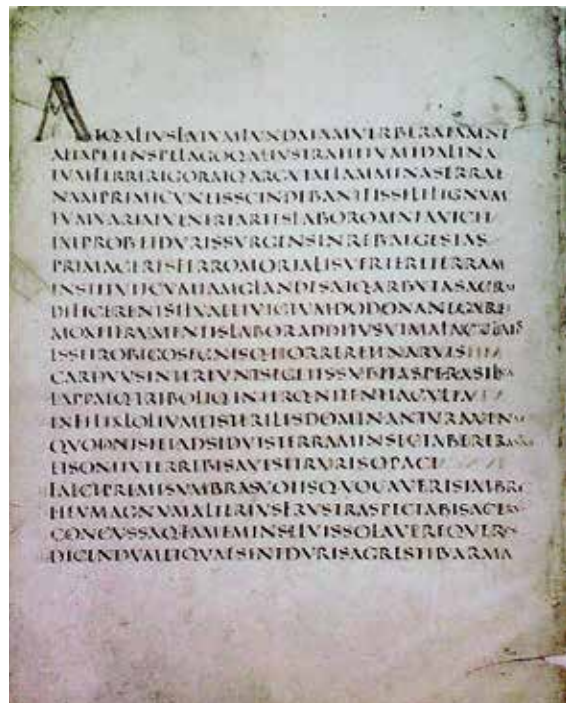 ATQ·ALIVSLATVMFVNDAIAMVERBERATAMNE
ALTAPETENSPELAGOQ·ALIVSTRAHITVMIDALINA
TVMFERRIRIGORATQ·ARGVTAELAMMINASERRAE
NAMPRIMICVNEISSCINDEBANTFISSILELIGNVM
TVMVARIAEVENEREARTESLABOROMNIAVICIT
IMPROBETDVRISSVRGENSINREBVSEGESTAS
PRIMACERESFERROMORTALISVERTERETERRAM
INSTITVITCVMIAMGLANDESATQ·ARBVTASACRAE
DEFICERENTSILVAEETVICTVMDODONANEGARET
MOXETFRVMENTISLABORADDITVSVTMALACVLMOS
ESSETROBIGOSEGNISQ·HORRERETINARVIS
CARDVVSINTEREVNTSEGETESSVBITASPERASILVA
LAPPAEQ·TRIBOLIQ·INTERQ·NITENTIACVLTA
INFELIXLOLIVMETSTERILISDOMINANTVRAVENAE
QVODNISIETADSIDVISTERRAMINSECTABERERAS
ETSONITVTERREBISAVESETRVRISOPACI
FALCEPREMISVMBRASVOTISQ·VOCAVERISIMBRE
HEVMAGNVMALTERIVSFRVSTRASPECTABISACER
CONCVSSAQ·FAMEMINSILVISSOLAVEREQVER
DICENDVMETQVAESINTDVRISAGRESTIBARMA